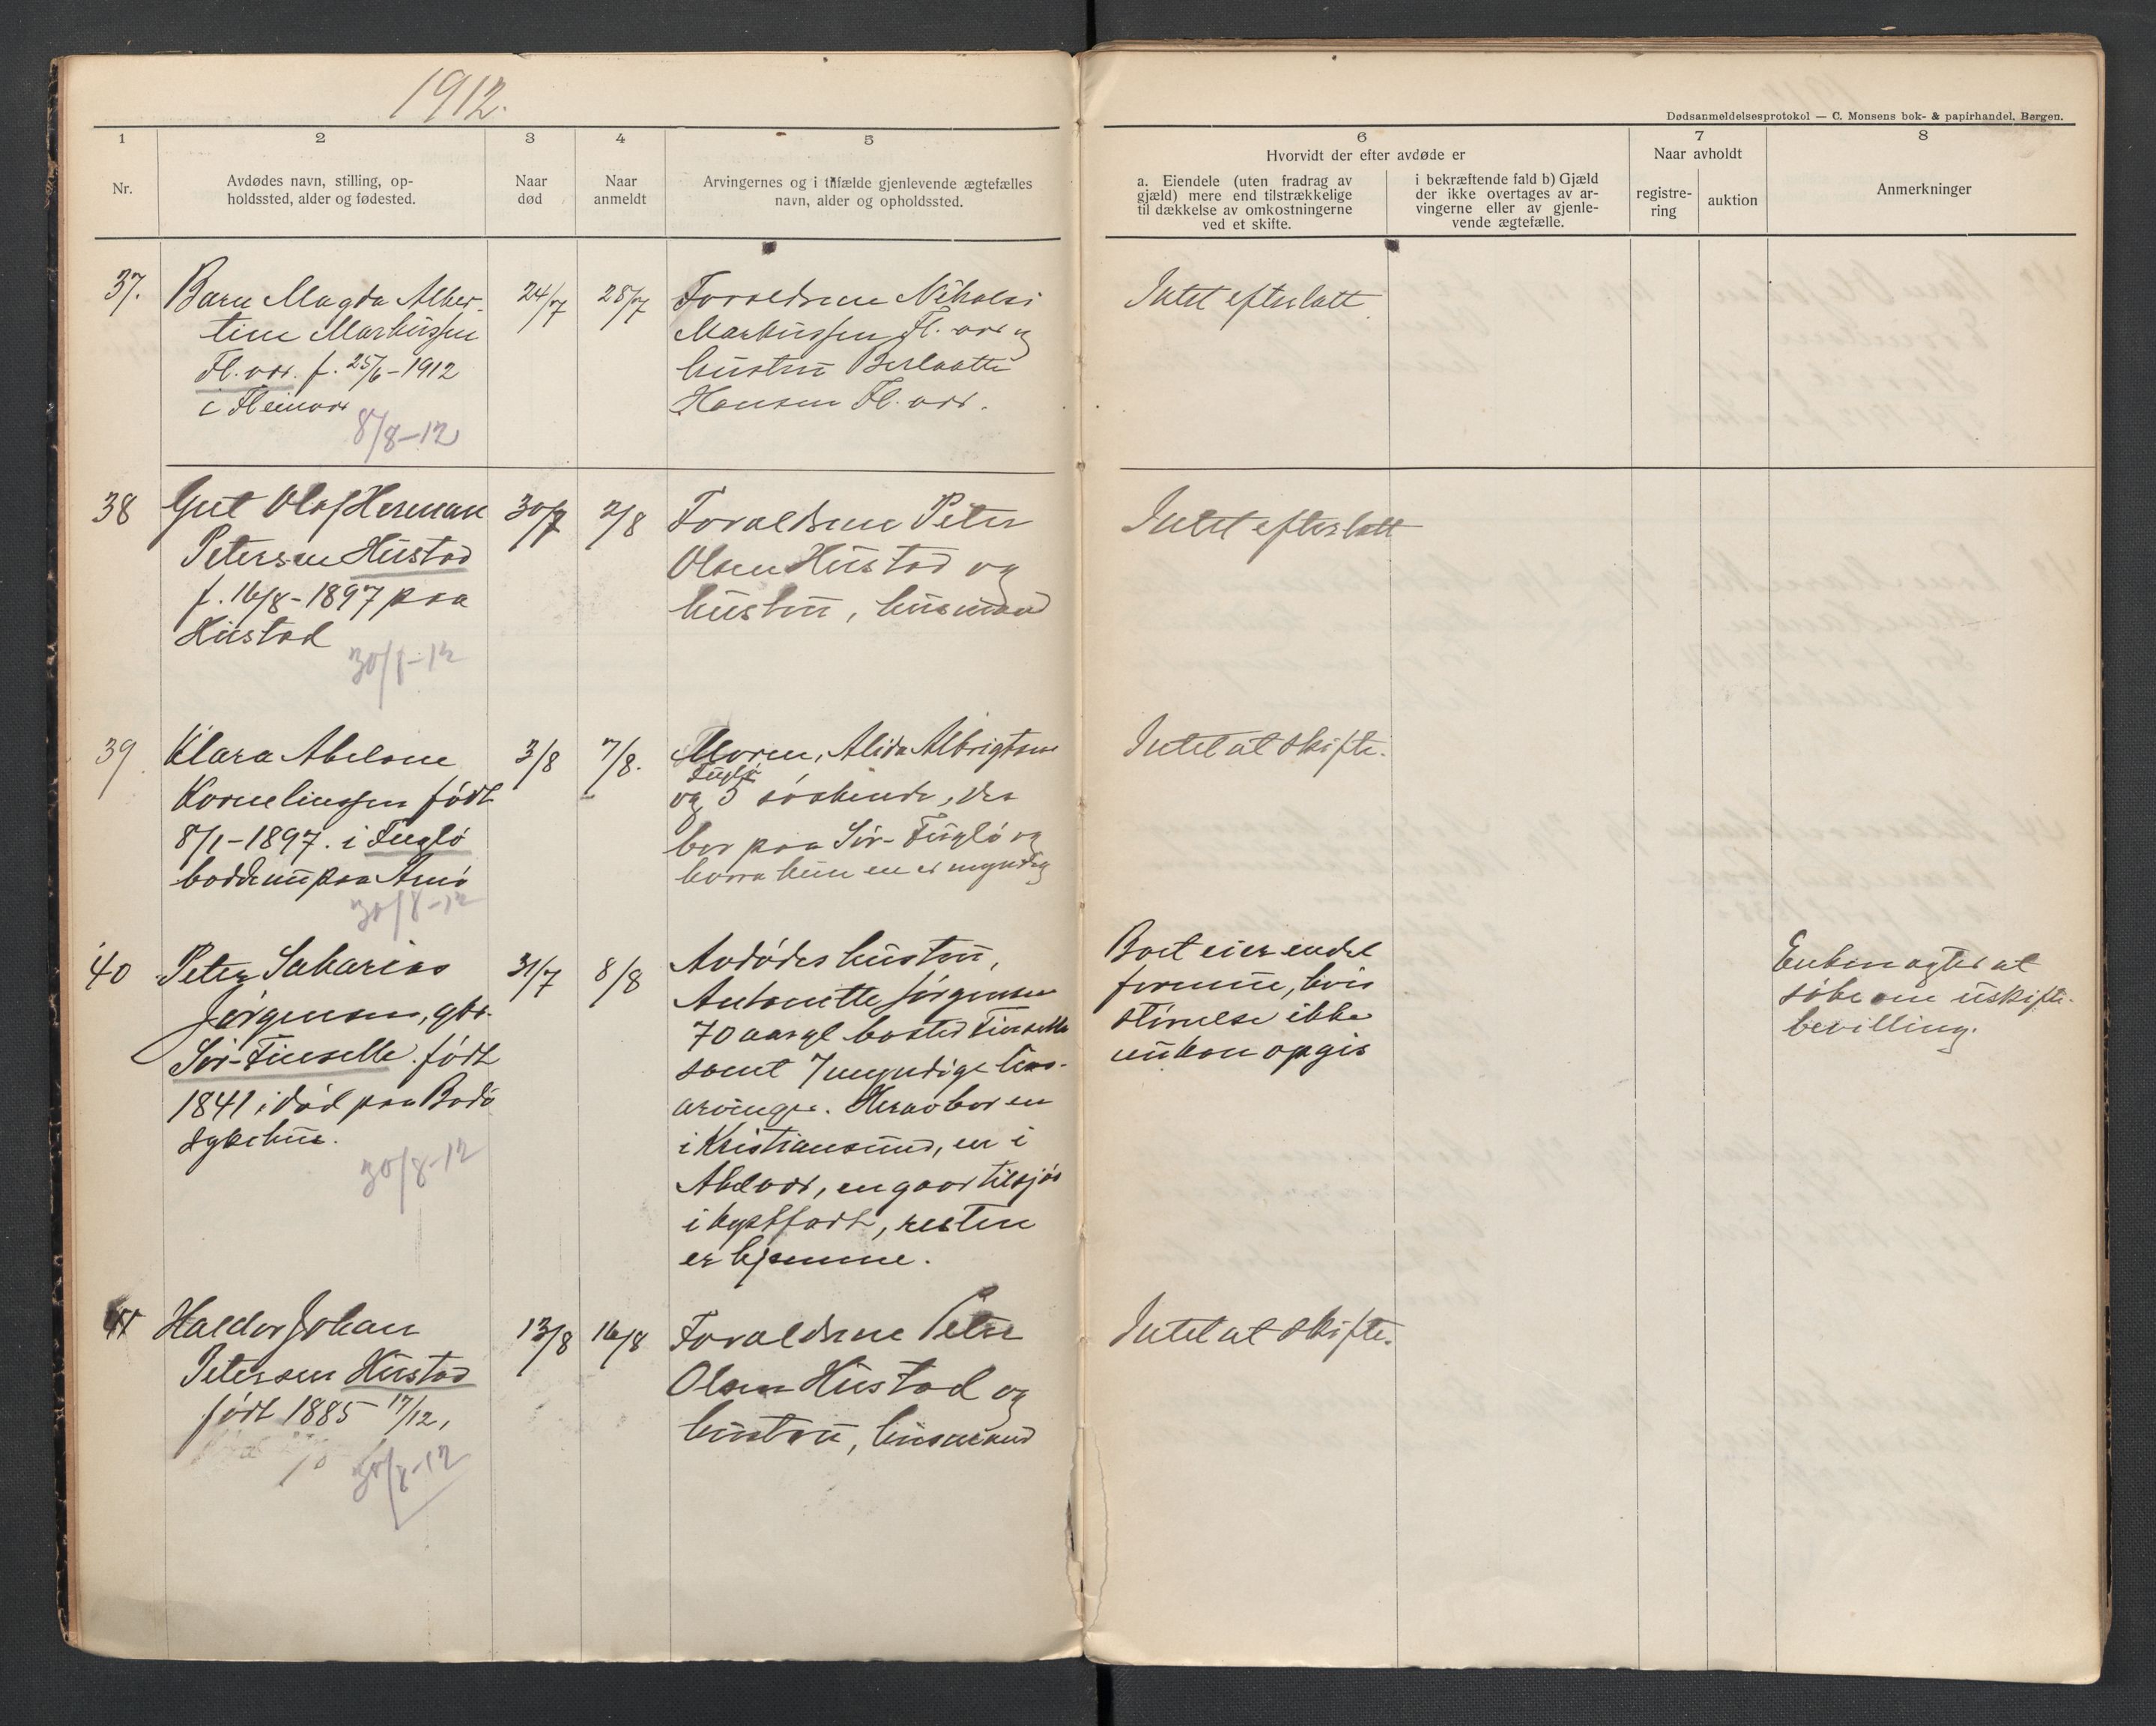 1912.
Dødsanmeldelsesprotokol — C. Monsens bok- & papirhandel, Bergen.
1
2
3
4
5
6
7
8
Nr.
Avdødes navn, stilling, op-
holdssted, alder og fødested.
Naar
død
Naar
anmeldt
Arvingernes og i tilfælde gjenlevende ægtefælles
navn, alder og opholdssted.
Hvorvidt der efter avdøde er
a. Eiendele (uten fradrag av
gjæld) mere end tilstrækkelige
til dækkelse av omkostningerne
ved et skifte.
i bekræftende fald b) Gjæld
der ikke overtages av ar-
vingerne eller av gjenle-
vende ægtefælle.
Naar avholdt
registre-
ring
auktion
Anmerkninger
37.
Barn Magda Alber-
tine Markussen
Fl. vær. f. 25/6 - 1912
i Fleinvær
8/8-12
24/7
28/7
Forældrene Nikolai
Markussen Fl. vær og
hustru Berlaatte
Hansen Fl. vær.
Intet efterlatt.
38
Gut Olaf Herman
Petersen Hustad
f. 16/8 - 1897 paa
Hustad
30/8-12
30/7
2/8
Forældrene Peter
Olsen Hustad og
hustru, husmand
Intet efterlatt
39.
Klara Abelone
Kornelinssen født
8/1 - 1897. i Fuglø
boddenu paa Arnø
30/8-12
3/8
7/8.
Moren, Alida Albrigtsen
Fuglø
og 5 søskende, der
bor paa Sør-Fuglø og
hvorav kun en er myndig
Intet at skifte.
40
Peter Sakarias
Jørgensen, gbr.
Sør-Finselle. født
1841, død paa Bodø
sykehus.
30/8-12
31/7
8/8
Avdødes hustru,
Antonette Jørgensen
70 aar gl. bosted Finselle
samt 7 myndige livs-
arvinger. Herav bor en
i Kristiansund, en i
Abelvær, en gaar tilsjøs
i kystfart, resten
er hjemme.
Boet eier endel
formue, hvis
størrelse ikke
nu kan opgis
Enken agter at
søke om uskifte-
bevilling.
41
Haldor Johan
Petersen Hustad
født 1885 17/12,
30/8-12
13/8
16/8
Forældrene Peter
Olsen Hustad og
hustru, husmand
Intet at skifte.